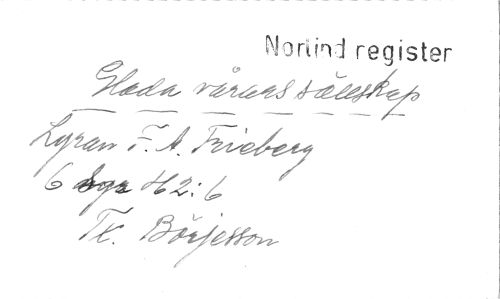 Norlind register
Glada vårens sällskap
Lyran F. A. Frieberg
6 H2:6
Tr. Börjesson